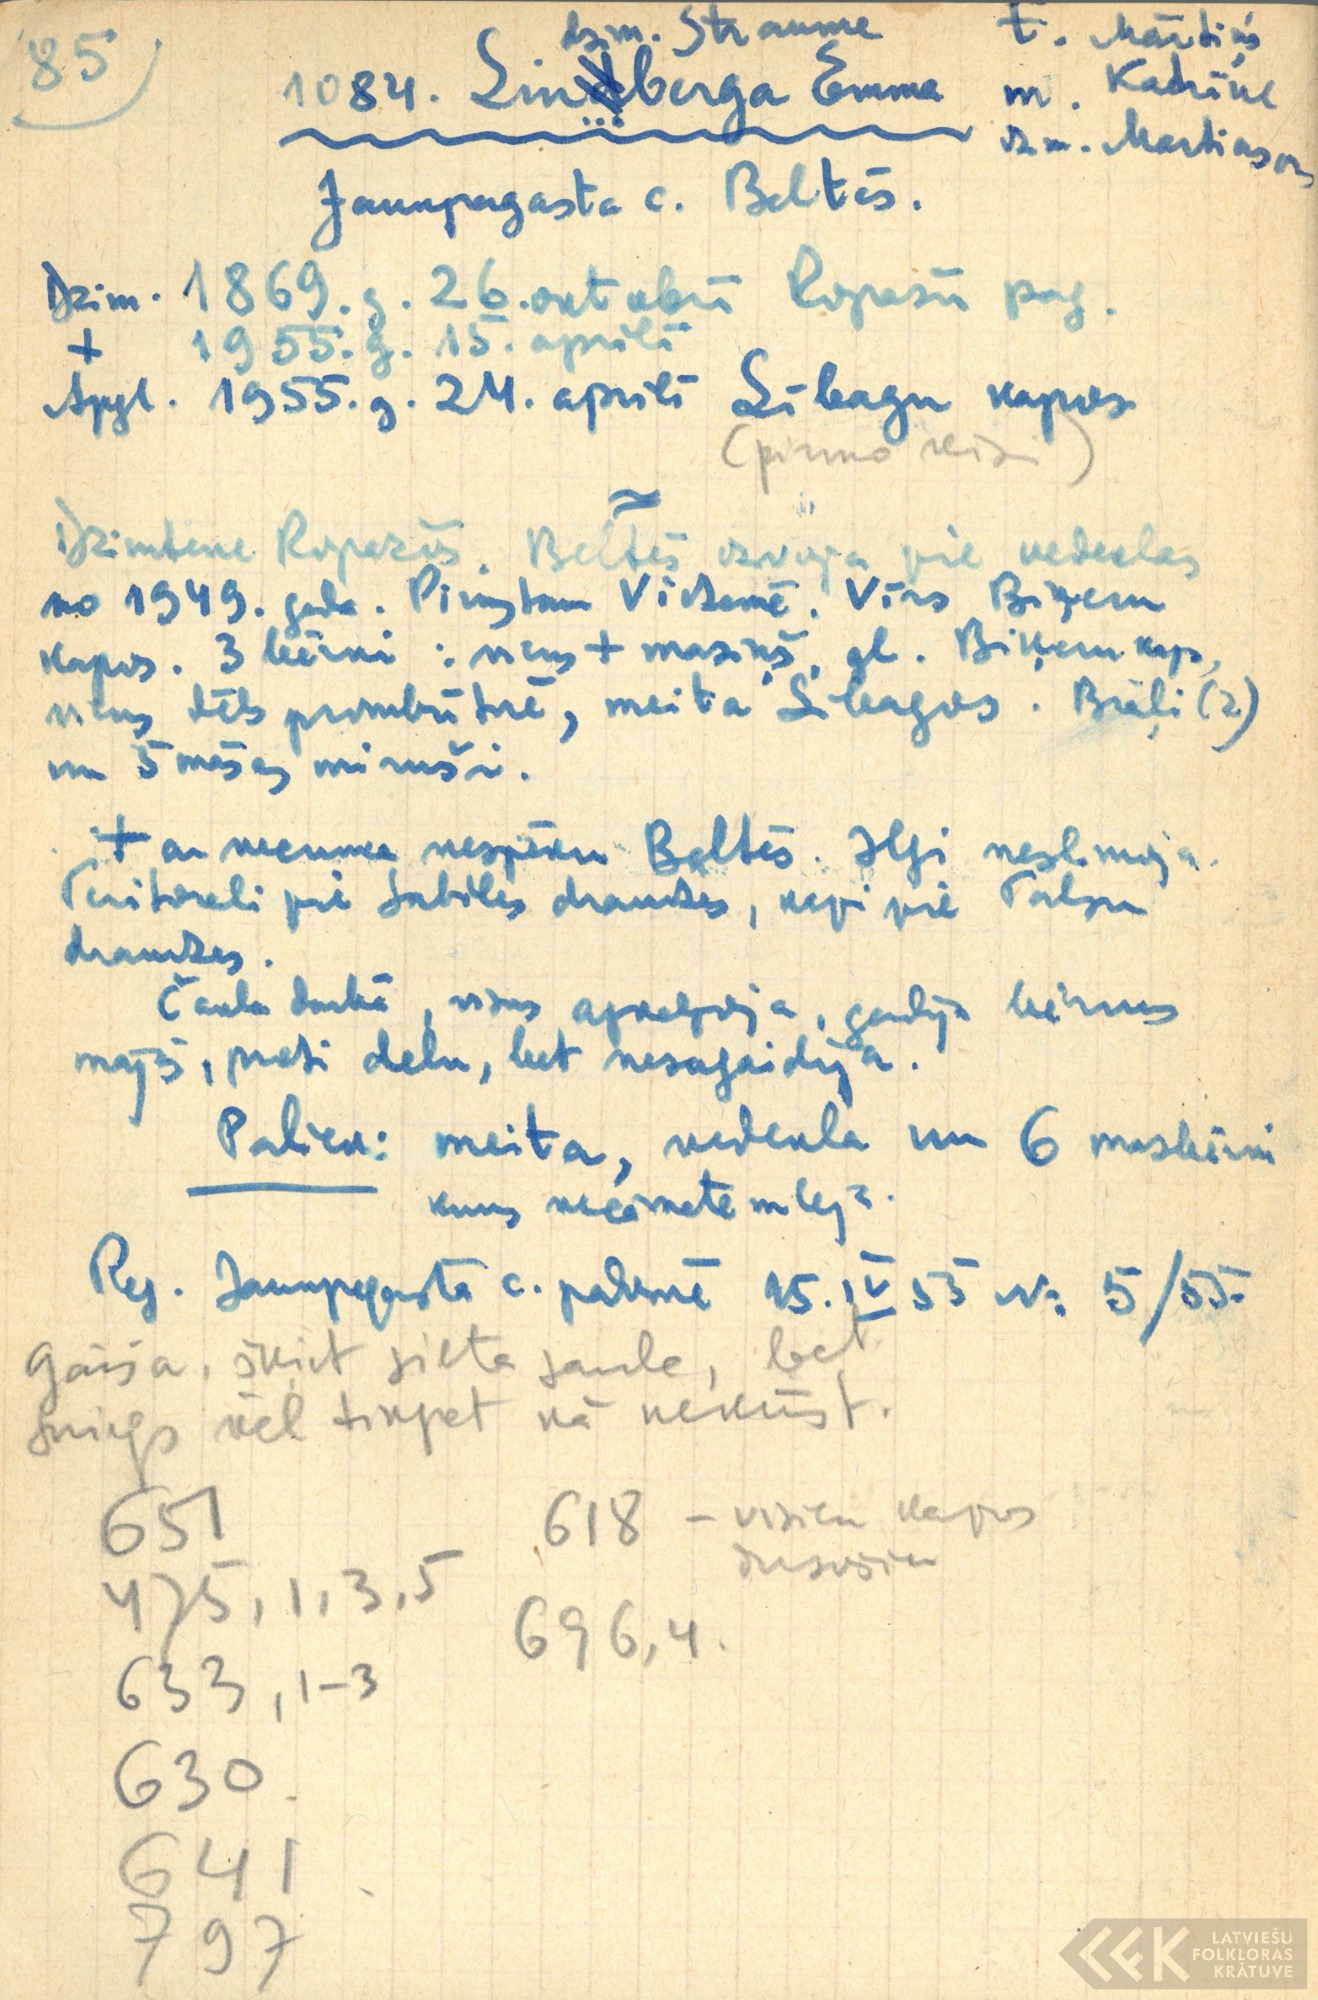 85
dzim. Straume
1084. Linberga Emma
t. Mārtiņš
m. Katrīne
dzim. Martinsons
Jaunpagasta c. Beltēs.
Dzim. 1869. g. 26. oktobrī Ropažu pag.
+ 1955. g. 15. aprīlī
Apgl. 1955. g. 24. aprīlī Lībagu kapos
(pirmo reizi)
Dzimtene Ropažos. Beltēs dzīvoja pie vedeklas
no 1949. gada. Pirmstam Vidzemē. Vīrs Biķeru
kapos. 3 bērni: viens + maziņš, gl. Biķeru kap,
viens dēls prombūtnē, meita Lībagos. Brāļi (2)
un 5 māsas miruši.
+ ar vecuma nespēku Beltēs. Ilgi neslimoja.
Teritoreli pie Sabiles draudzes, bet pie Talsu
draudzes.
Čakla darbā, visus apkopoja, gaidīja bērnus
mājās, proti dēlu, bet nesagaidīja.
Paliek: meita, vedekla un 6 mazbērni
kurus vecāmāte mīlēja.
Reg. Jaunpagasta c. padomē 15. IV 55 N: 5/55.
Gaiša, šķiet silta saule, bet
sniegs vēl tikpat kā nekūst.
651
475, 1, 3, 5
633, 1-3
630.
641
797
618 – visiem kapos
dusošiem
696, 4.
LATVIEŠU
FOLKLORAS
KRĀTUVE